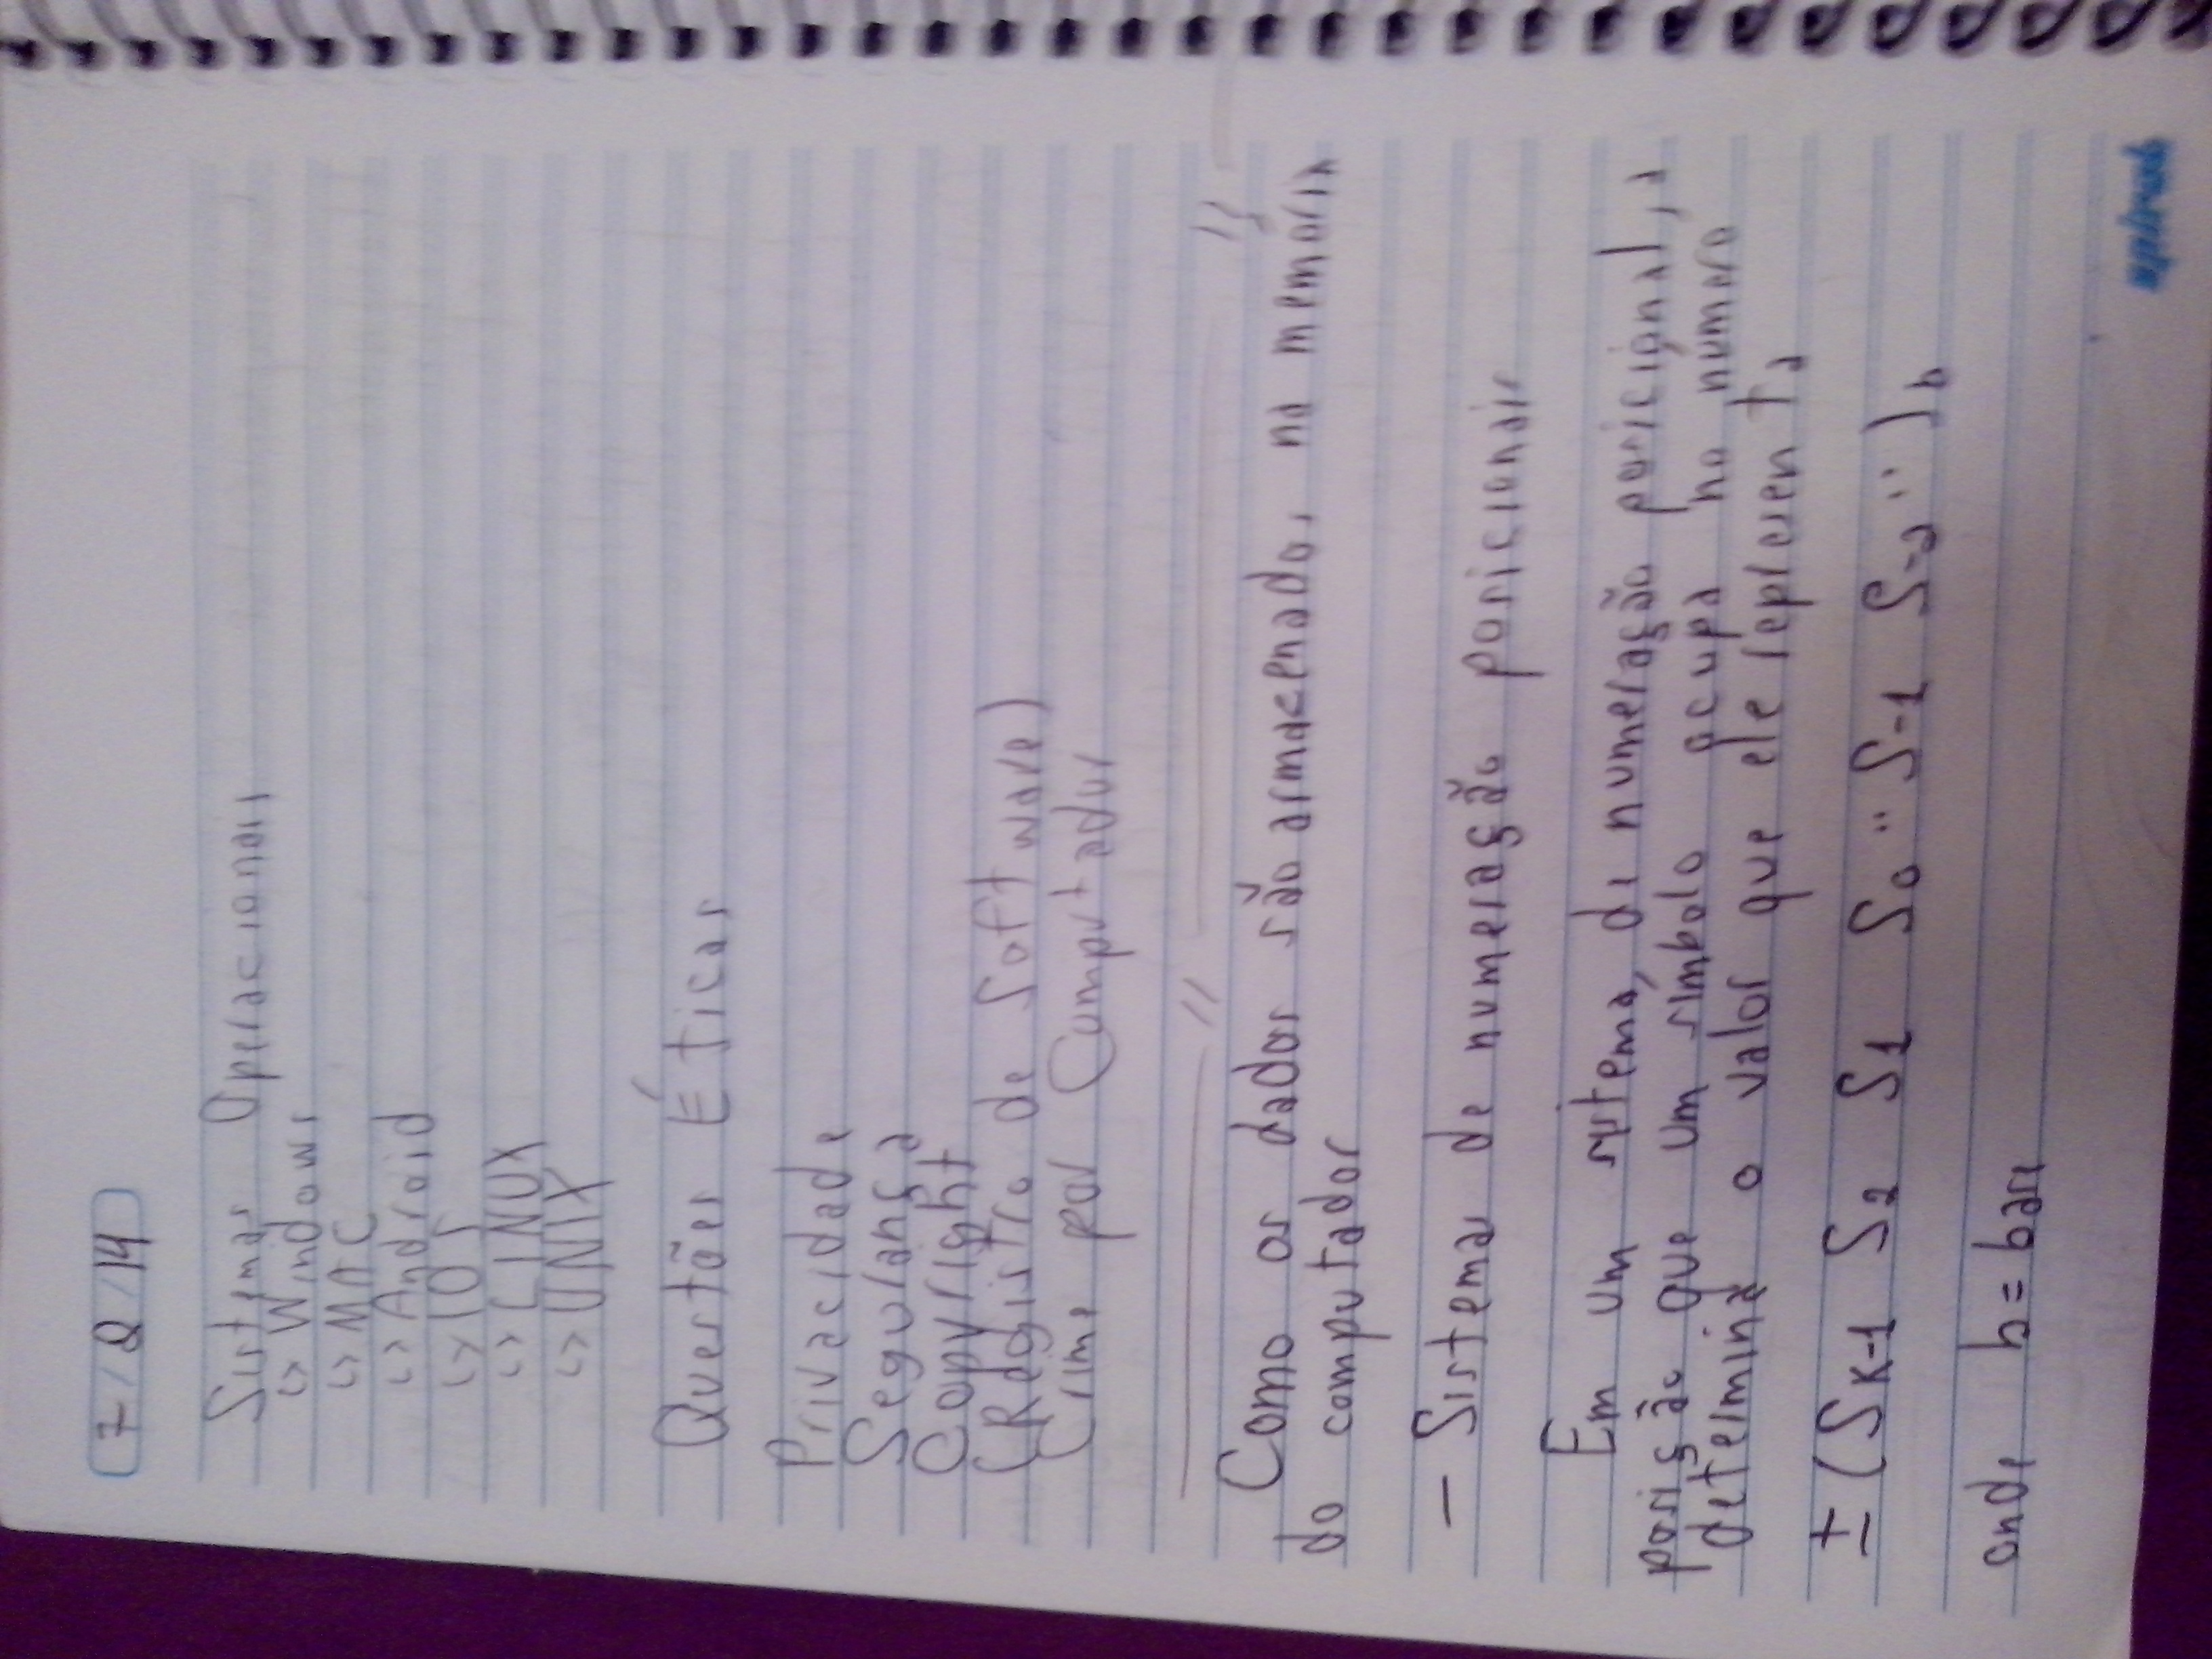 7/8/14
Sistemas Operacionais
↳ Windows
↳ MAC
↳ Android
↳ IOS
↳ LINUX
↳ UNIX
Questões Éticas
Privacidade
Segurança
Copyright
(Registro de Software)
Crime por Computador
Como os dados são armacenados na memória
do computador
- Sistemas de numeração posicionais
Em um sistema, de numeração posicional, a
posição que um símbolo ocupa no número
determina o valor que ele representa
± (S K-1 S 2 S 1 S 0 .. S -1 S -2 ...) b
onde b = base